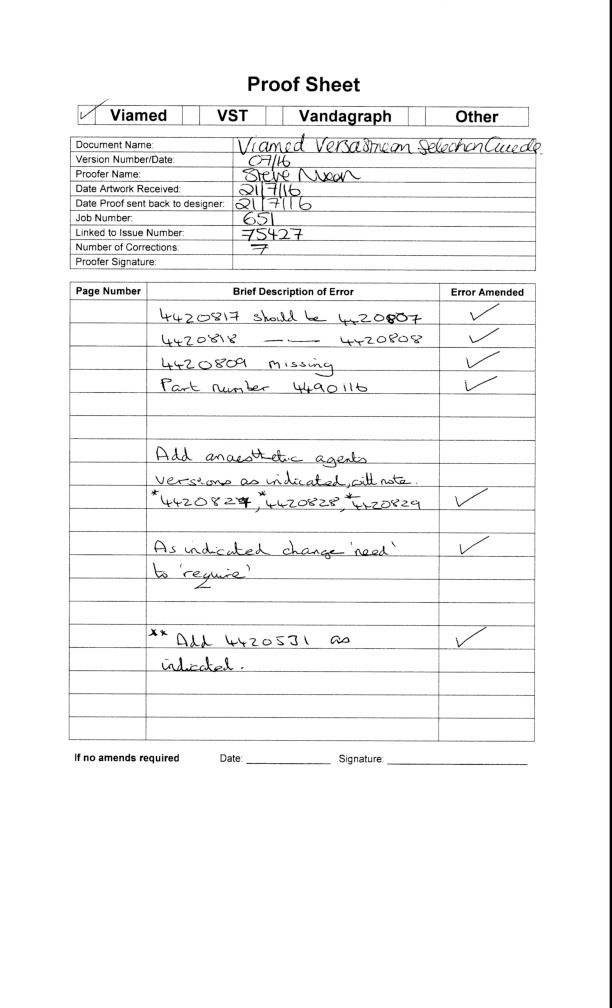 Proof Sheet
✓ Viamed VST Vandagraph Other
Document Name: Viamed Versastream Selection Guide
Version Number/Date: 07/16
Proofer Name: Steve Nixon
Date Artwork Received: 21/7/16
Date Proof sent back to designer: 21/7/16
Job Number: 651
Linked to Issue Number: 75427
Number of Corrections: 7
Proofer Signature:
Page Number Brief Description of Error Error Amended
4420817 should be 4420807 ✓
4420818 —— 4420808 ✓
4420809 missing ✓
Part number 4490116 ✓
Add anaesthetic agents
versions as indicated, note.
*4420827, *4420828, *4420829 ✓
As indicated change 'need' ✓
to 'require'
** Add 4420531 as ✓
indicated.
If no amends required Date: Signature: